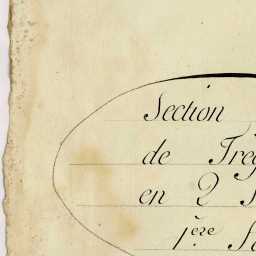 Section
de Trég
en 2
1ère